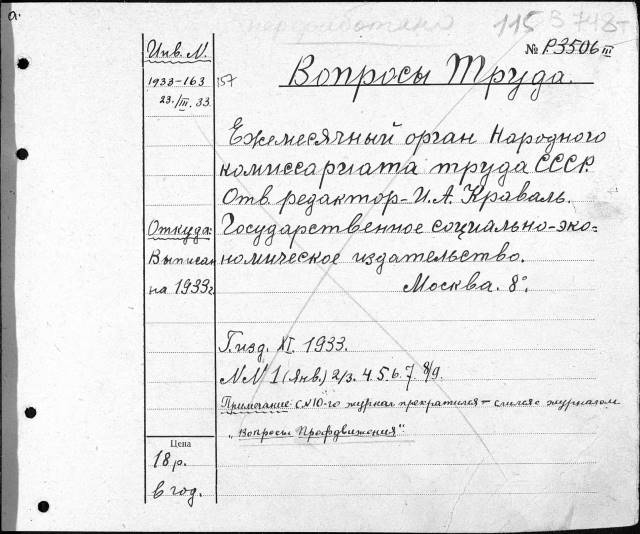 а.
переработано
115 В 748-т
Инв. №
№ Р3506 III
1933-163
157
23./III. 33.
Вопросы Труда.
Ежемесячный орган Народного
комиссариата труда СССР.
Отв. редактор - И. А. Краваль.
Откуда:
Государственное социально-эко=
Выписан
номическое издательство.
на 1933г
Москва. 8°.
Г. изд. XI. 1933.
№№ 1 (Янв.) 2/3. 4. 5. 6. 7. 8/9.
Примечание: с №10-го журнал прекратился - слился с журналом
„Вопросы Профдвижения".
Цена
18 р.
в год.